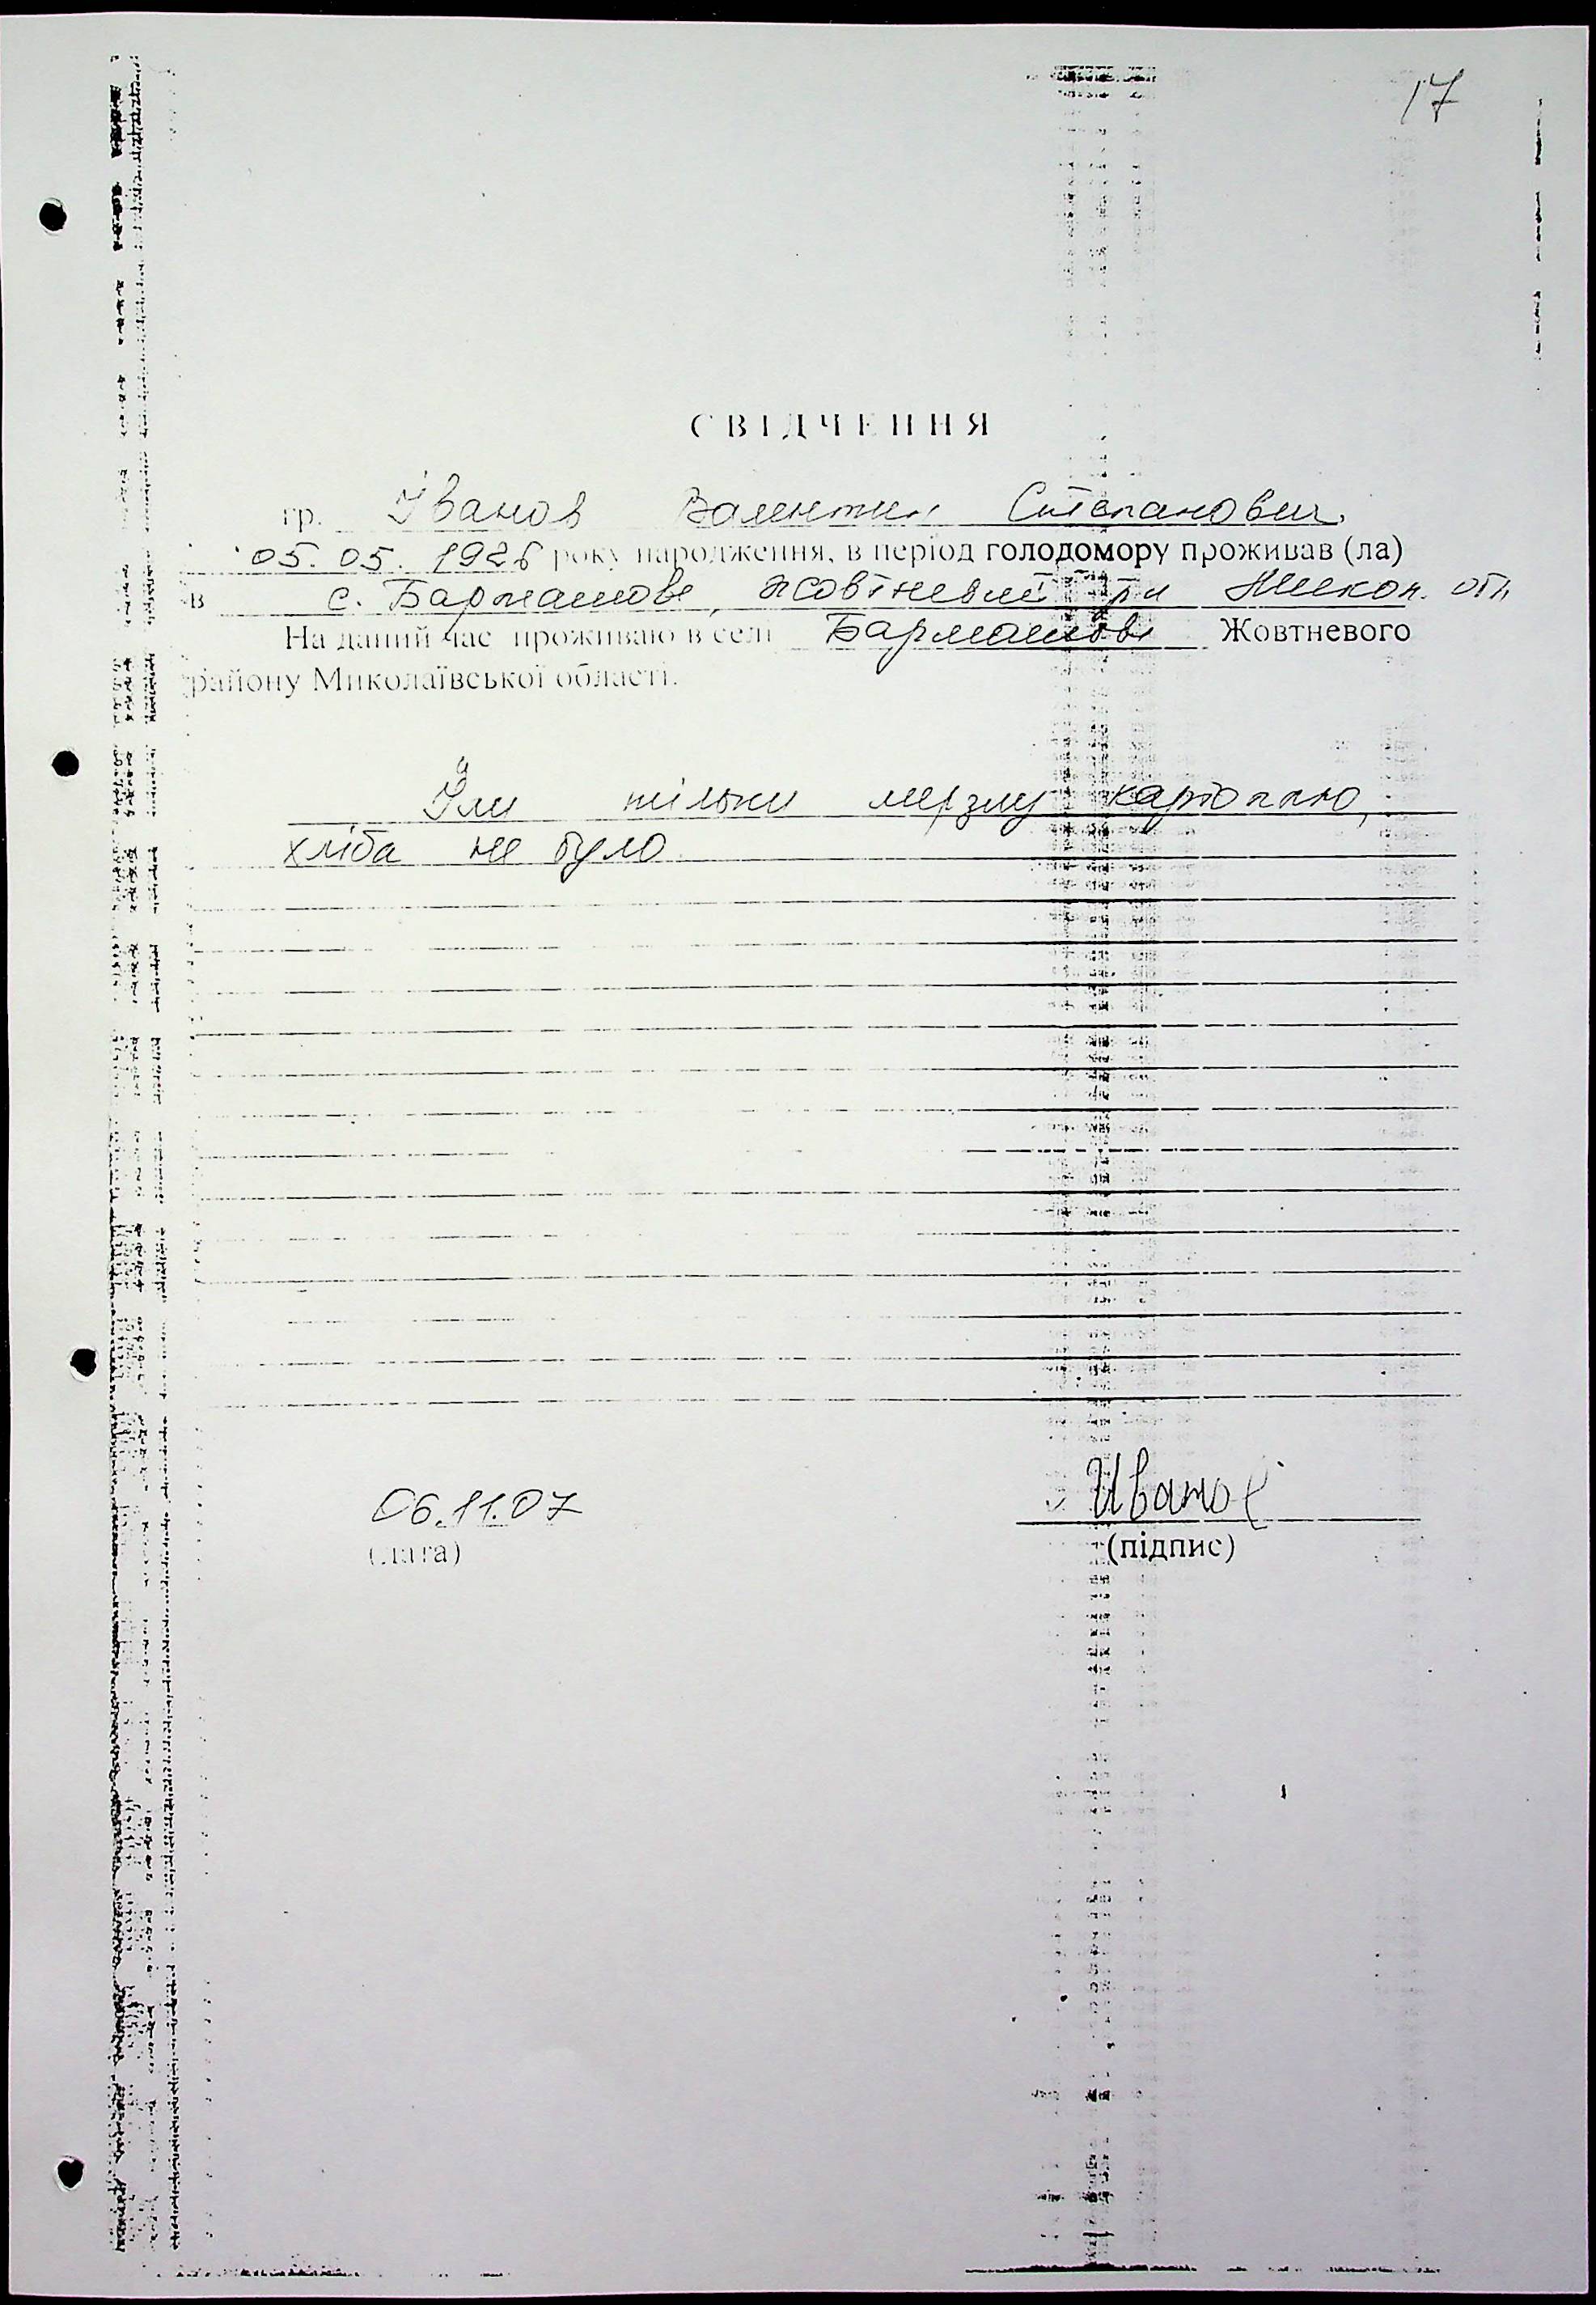 17
СВІДЧЕННЯ
гр. Іванов Валентин Степанович,
05.05.1926 року народження, в період голодомору проживав (ла)
в с. Бармашове, Жовтневий р-н Микол. обл.
На даний час проживаю в селі Бармашове Жовтневого
району Миколаївської області.
Їли тільки мерзлу картоплю,
хліба не було
06.11.07
Иванов
(дата)
(підпис)